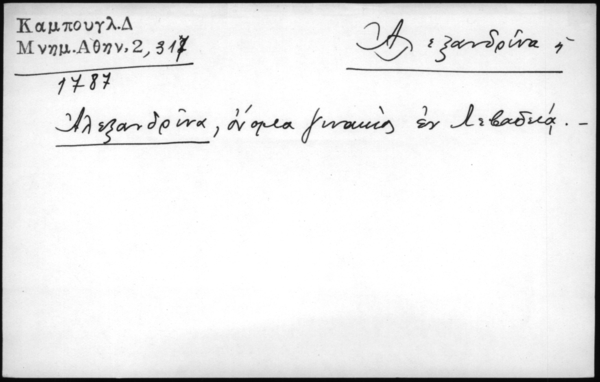 Καμπουγλ.Δ
Μνημ.Αθην,2,317
Ἀλεξανδρῖνα ἡ
1787
Ἀλεξανδρῖνα, ὄνομα γυναικὸς ἐν Λεβαδείᾳ. –